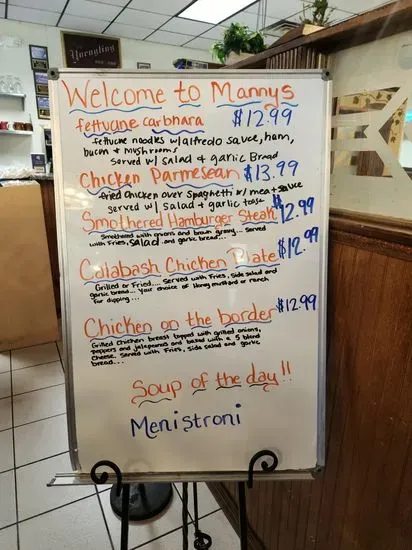 Yuengling
Welcome to Mannys
fettucine carbhara $12.99
fettucine noodles w/alfredo sauce, ham,
bacon + mushrooms
served w/ salad + garlic Bread
Chicken Parmesean $13.99
fried chicken over spaghetti w/ mea + sauce
served w/ salad + garlic toast
Smothered Hamburger Steak $12.99
Smothered with onions and brown gravy... Served
with Fries, Salad and garlic bread...
Calabash Chicken Plate $12.99
Grilled or Fried.... Served with Fries, Side salad and
garlic bread... Your choice of Honey mustard or ranch
for dipping...
Chicken on the border $12.99
Grilled Chicken breast topped with grilled onions,
peppers and jalepenos and basted with a 5 blend
cheese. Served with Fries, Side salad and garlic
bread...
Soup of the day!!
Menistroni